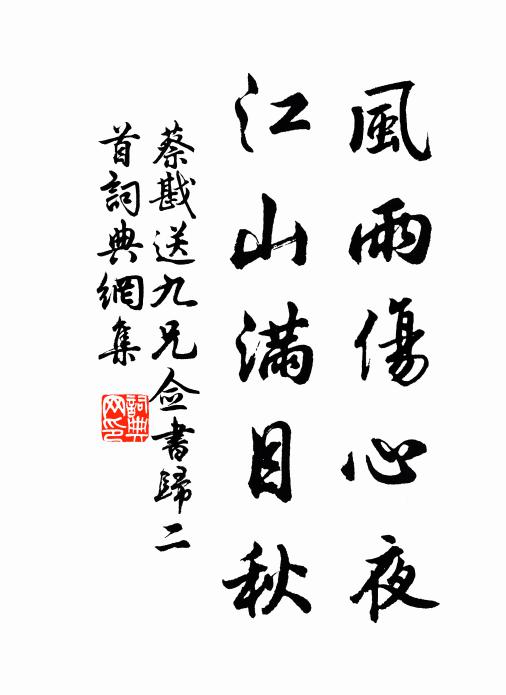 風雨傷心夜
江山滿目秋
蔡戡送九兄僉書歸二
首詞典網集
詞典
网印